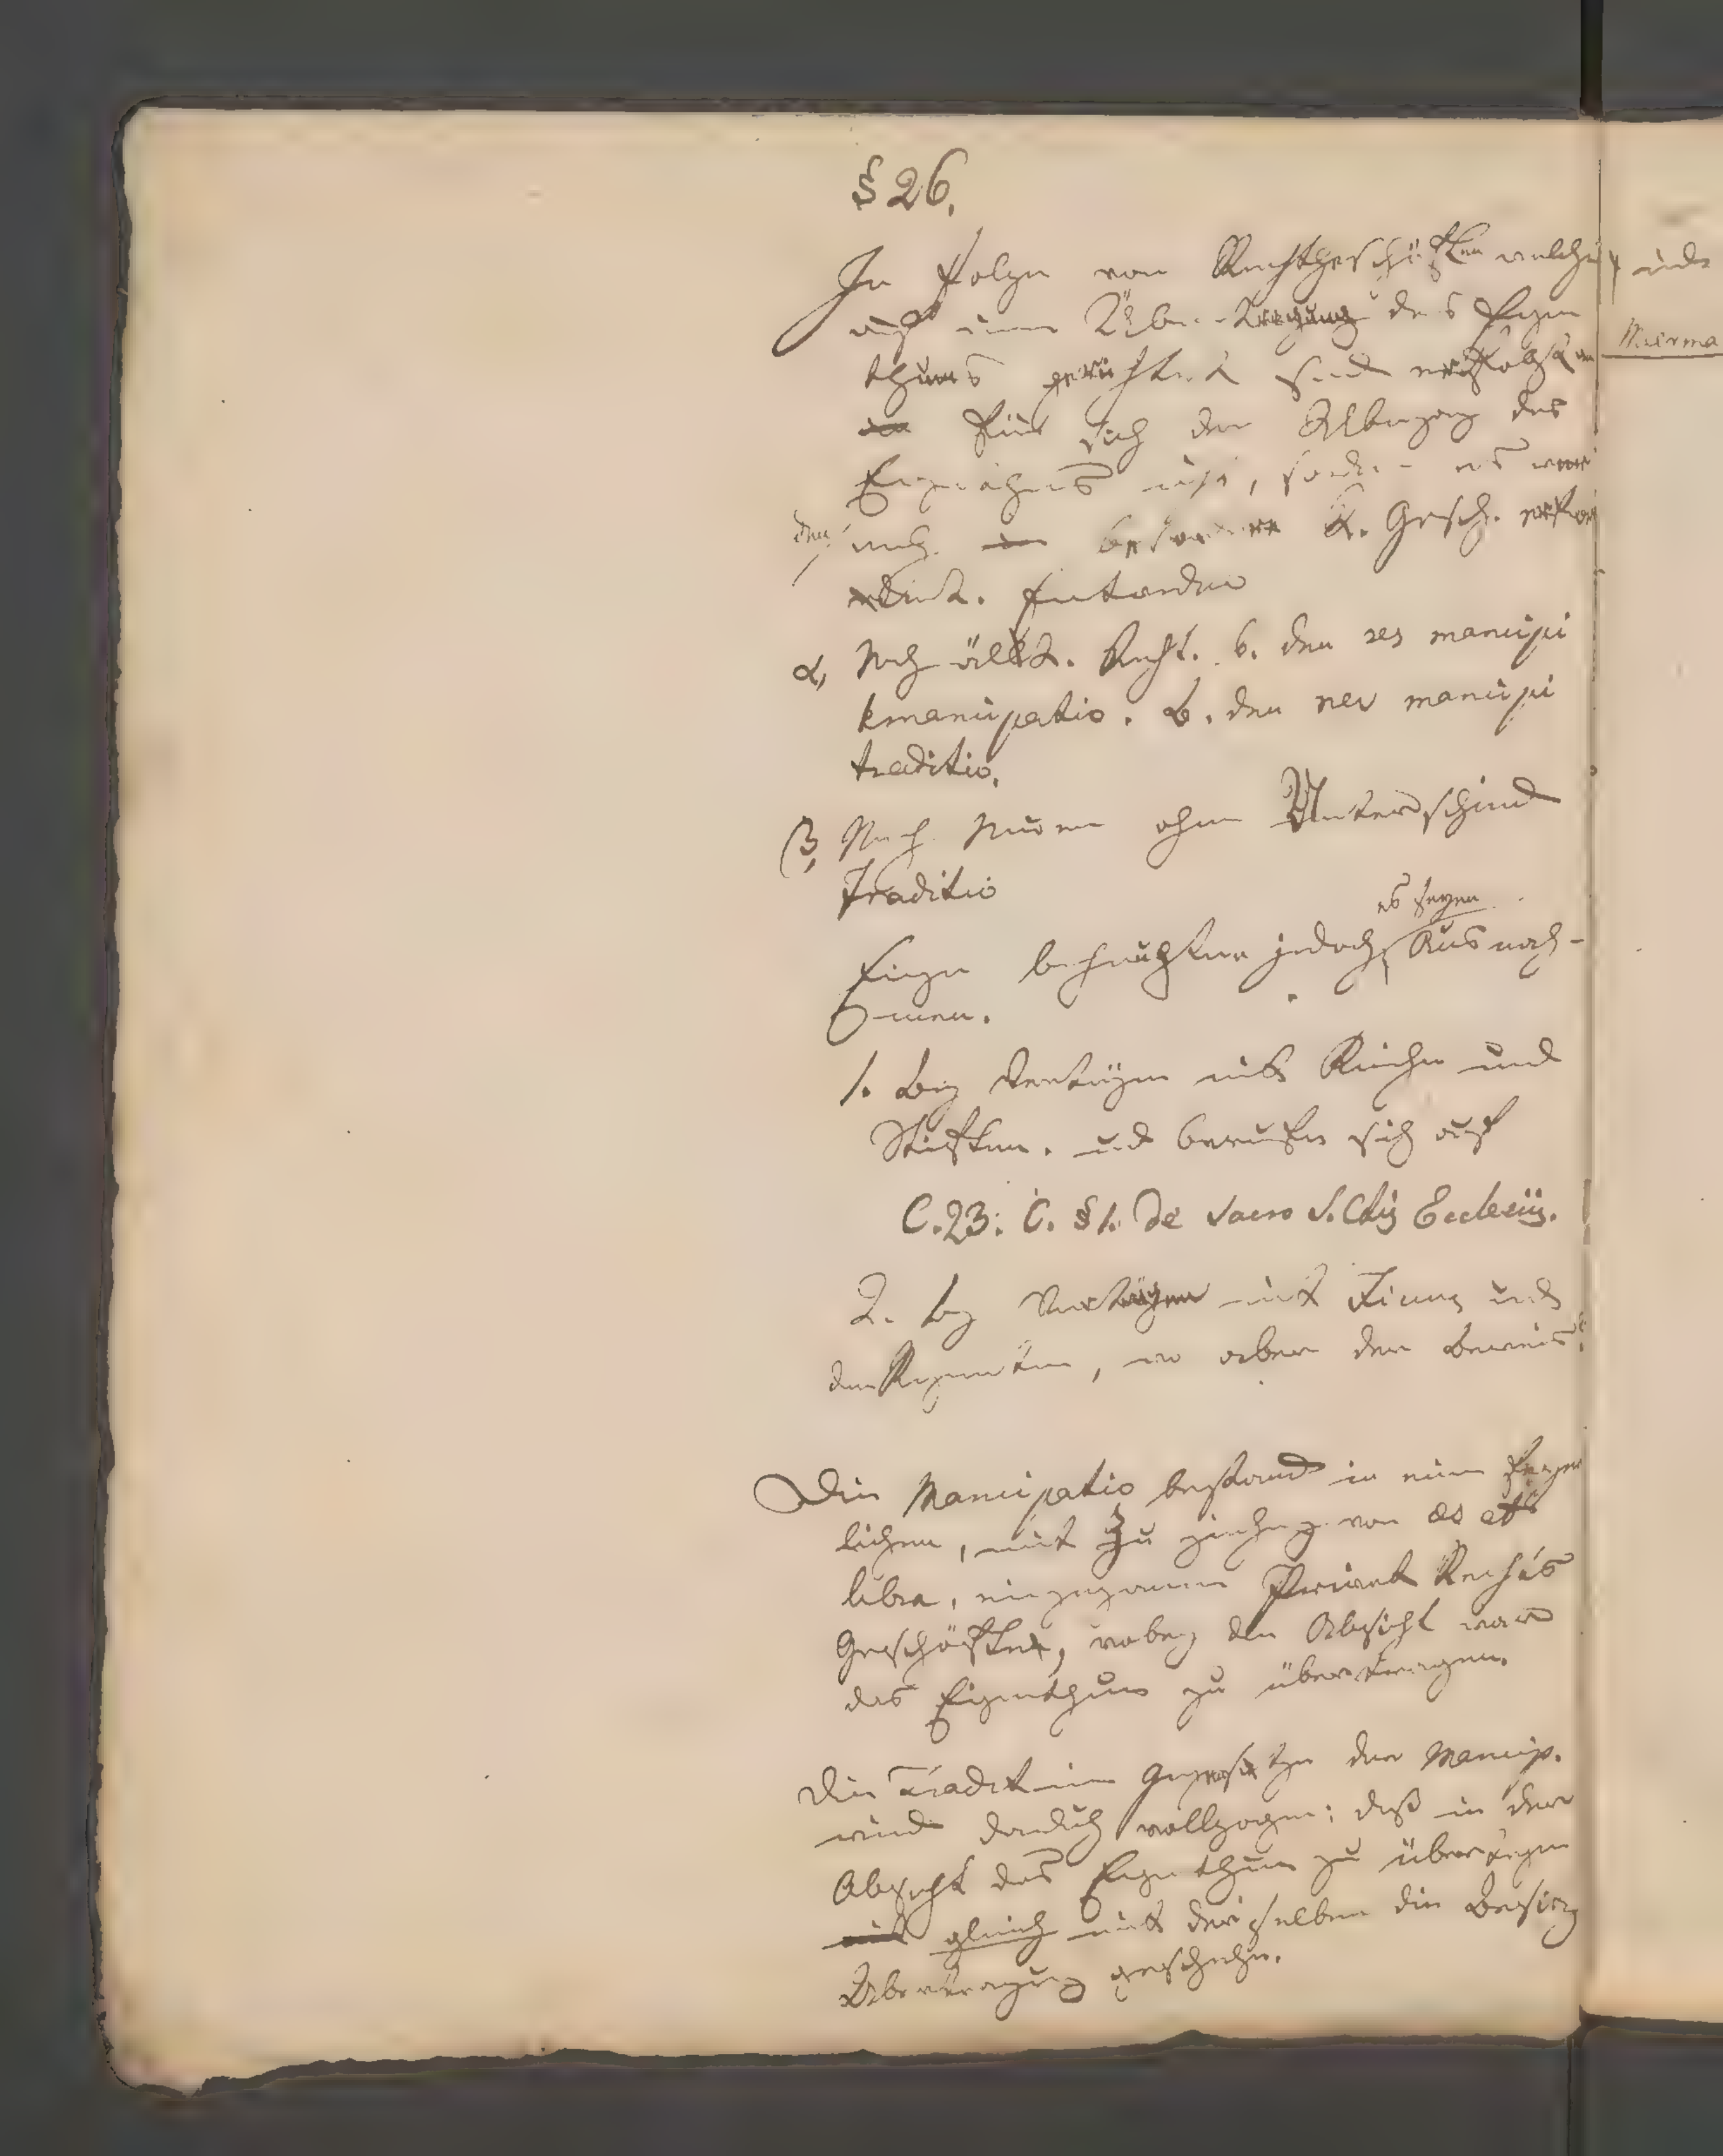 § 26.
In Folge von Rechtsgeschäften welche
auf eine Über-tragung des Eigen
thums gerichtet sind erfolgt an
für sich der Übergang des
Eigenthums nicht, sondern es
noch besondere R. Gesch. erfor
dert. Entweder
α, Nach ältst. Recht. b. den res mancipi
mancipatio. b. den nec mancipi
traditio.
β, Nach neuen ohne Unterschied
Traditio
Einige behaupten jedoch, es seyen Ausnah-
men.
1. bey Verträgen mit Kirchen und
Stiften. und berufen sich auf
C. 23: C. § 1. De Sacro S. Ctis Ecclesiis.
2. bey Verträgen mit Fiscus und
den Regenten, wo aber der Beweis
Die Mancipatio bestand in einem feyer
lichen, mit Zuziehung von aes et
libra, eingegangenen Privat Rechts
Geschäfte, wobey die Absicht war
das Eigenthum zu übertragen.
Die Tradit im Gegensatze der Mancip.
wird dadurch vollzogen: daß in der
Absicht das Eigenthum zu übertragen
mit gleich mit derselben die Besitz
Übertragung geschehe.